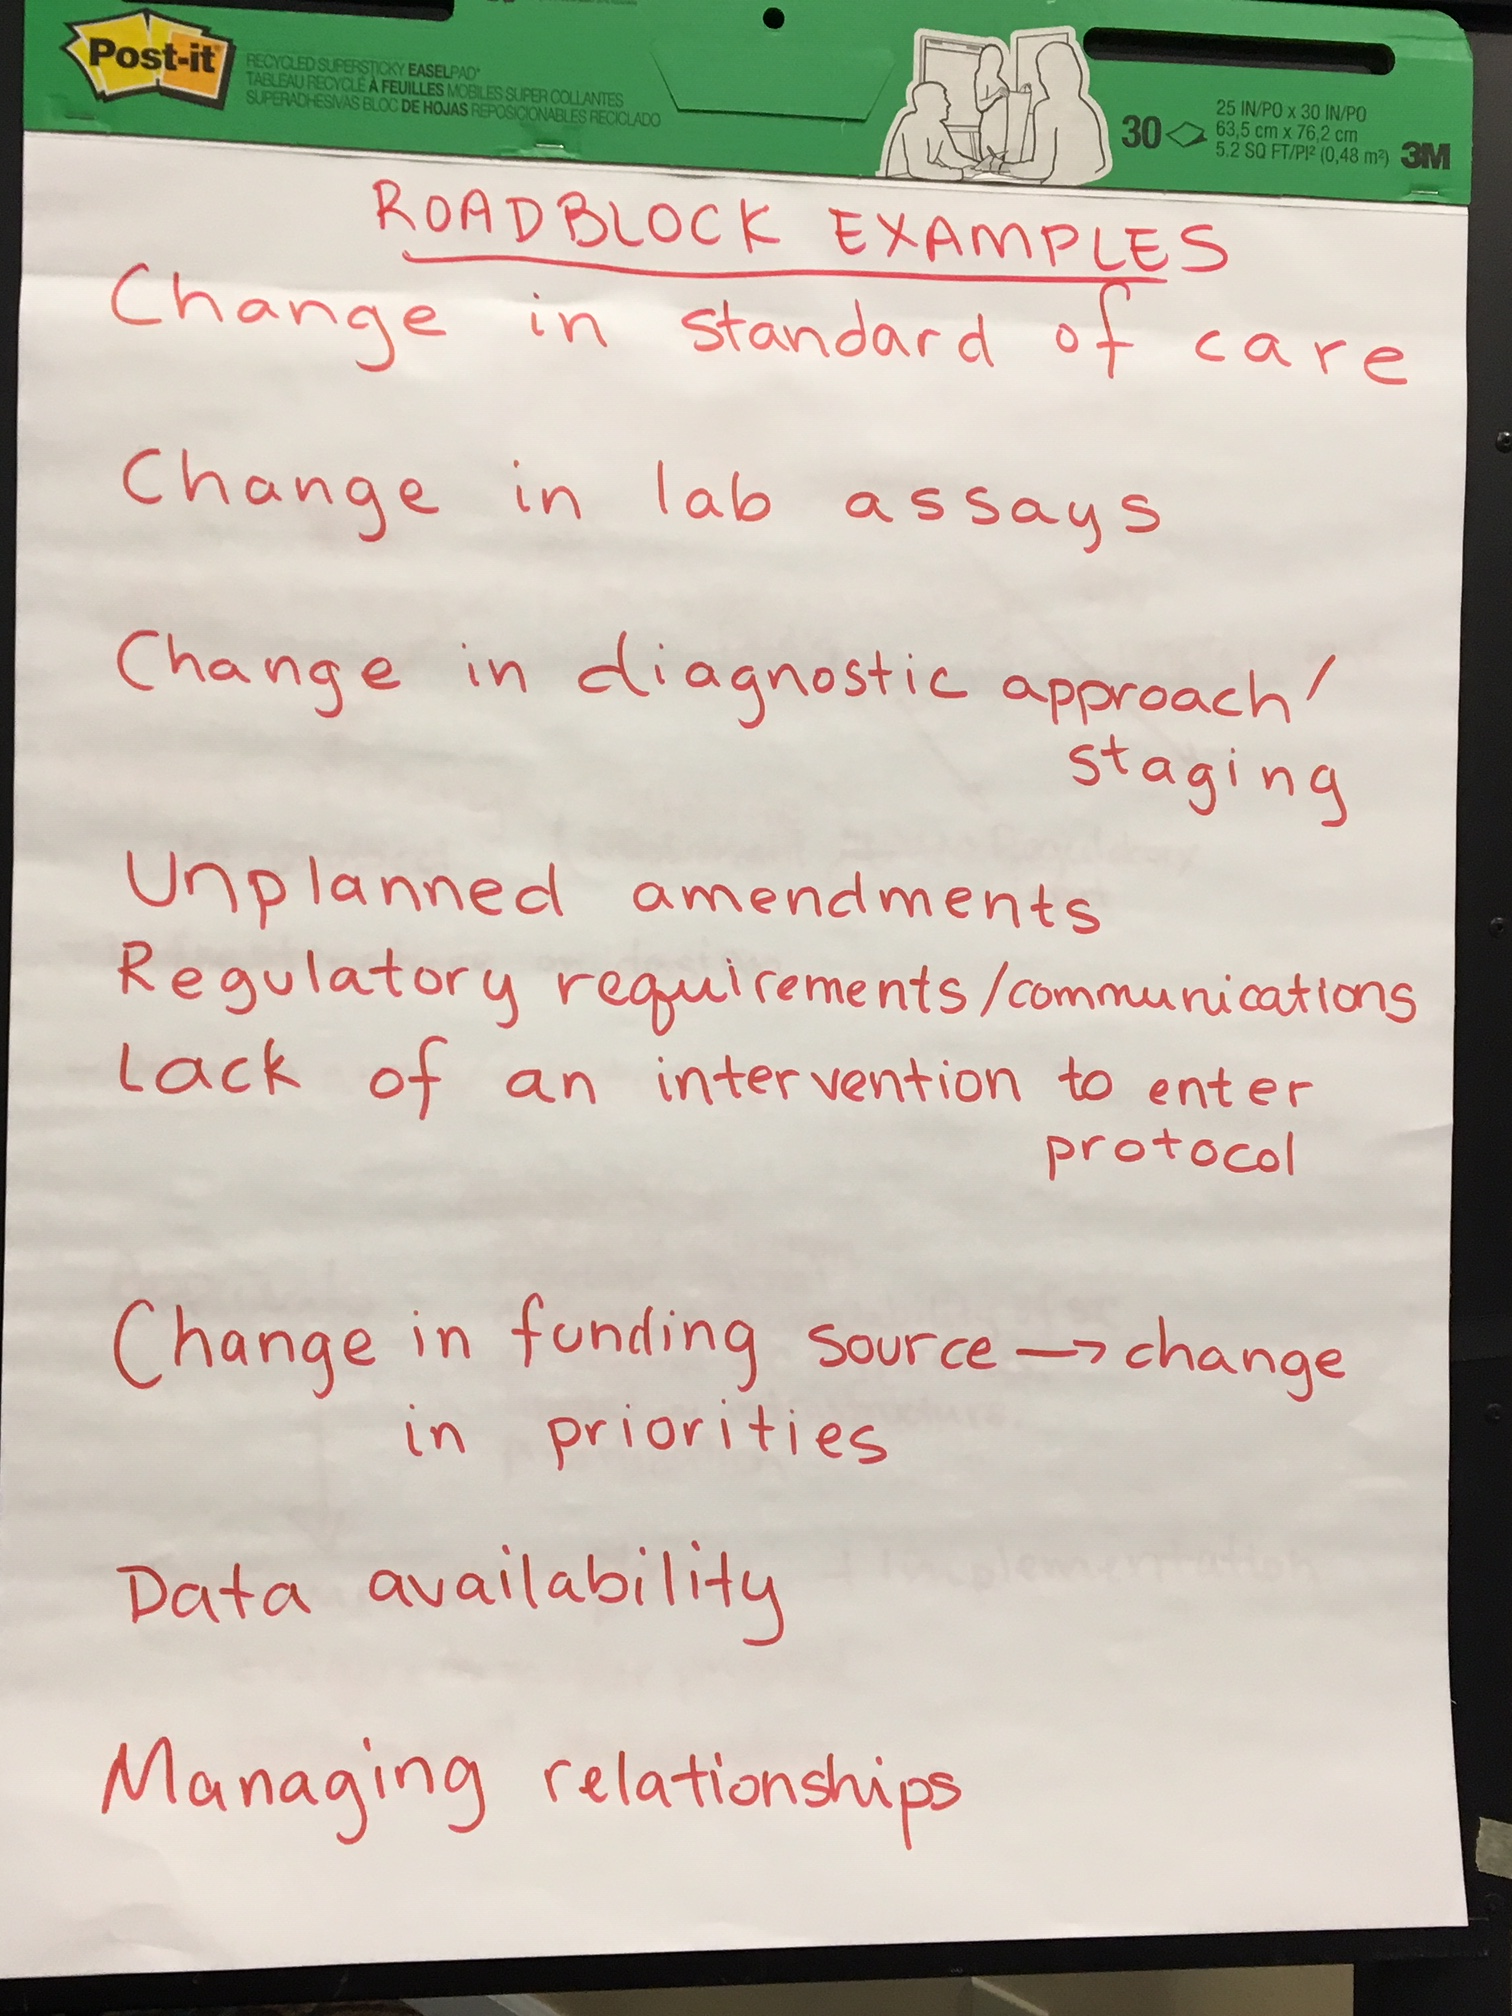 Post-it
RECYCLED SUPERSTICKY EASELPAD*
TABLEAU RECYCLÉ À FEUILLES MOBILES SUPER COLLANTES
SUPERADHESIVAS BLOC DE HOJAS REPOSICIONABLES RECICLADO
30
25 IN/PO x 30 IN/PO
63,5 cm x 76,2 cm
5.2 SQ FT/PI² (0,48 m²)
3M
ROADBLOCK EXAMPLES
Change in standard of care
Change in lab assays
Change in diagnostic approach/
staging
Unplanned amendments
Regulatory requirements/communications
Lack of an intervention to enter
protocol
Change in funding source → change
in priorities
Data availability
Managing relationships